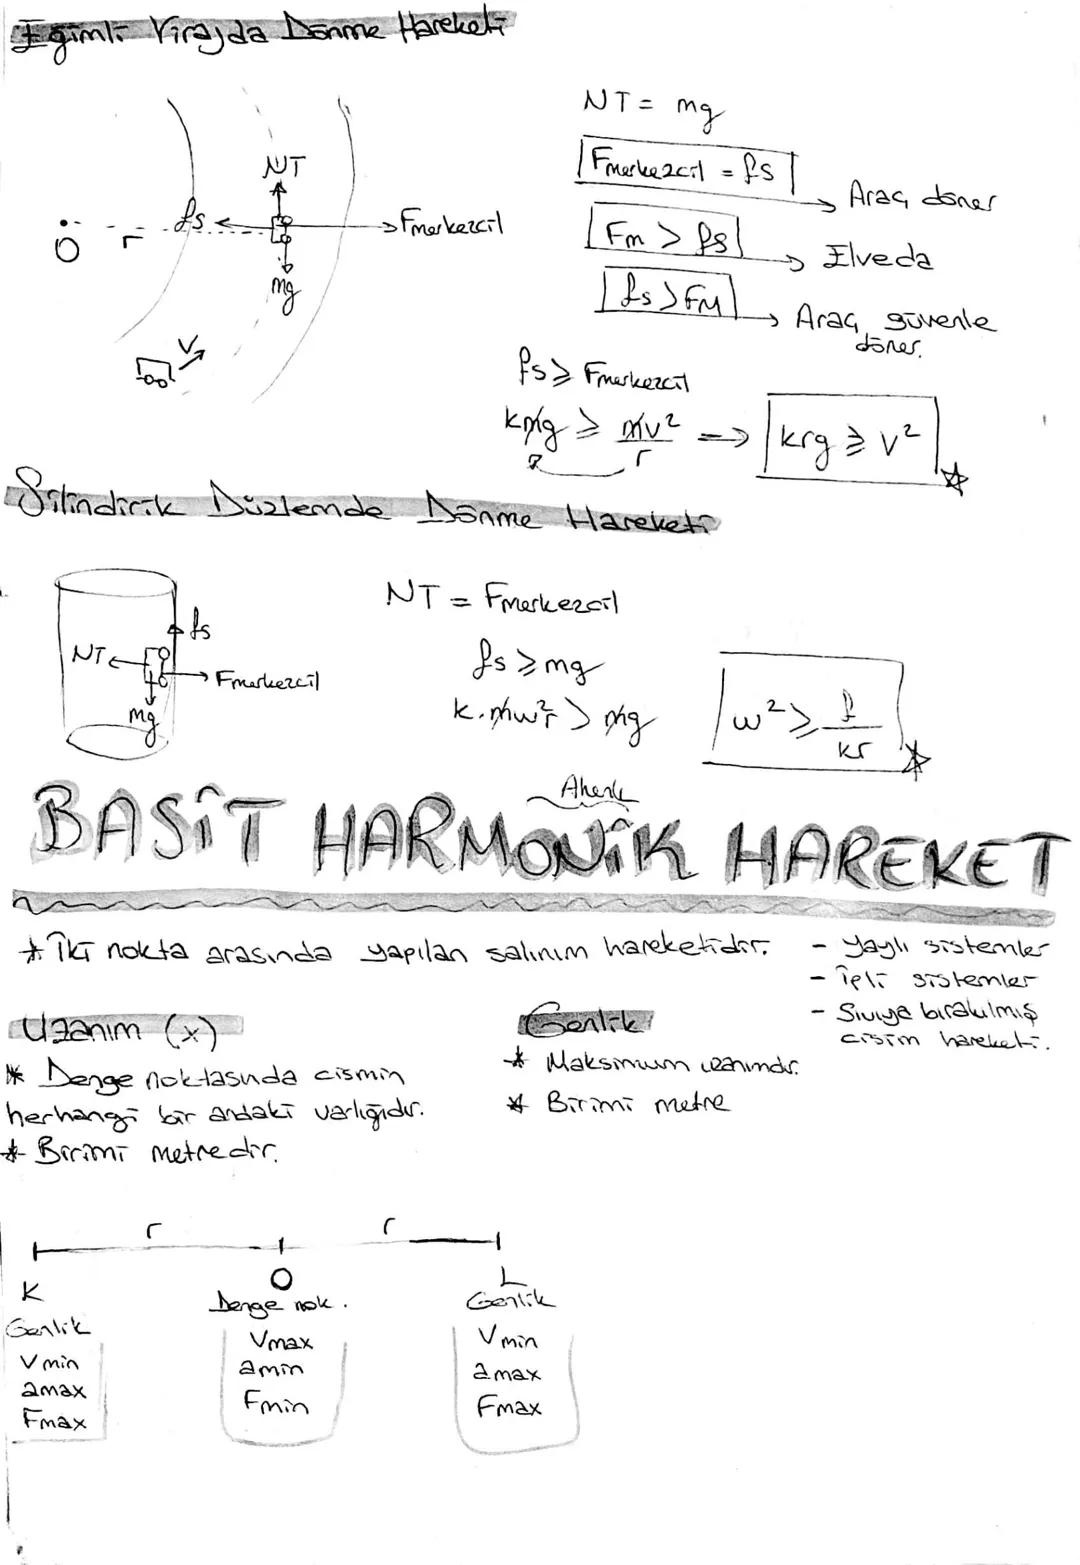 Eğimli Virajda Dönme Hareketi
NT = mg
Fmerkezcil = fs
Araç döner
Fm > fs
Elveda
fs > FM
Araç güvenle
döner.
NT
fs
Fmerkezcil
O
r
mg
V
fs ≥ Fmerkezcil
kmg ≥ mv²/r => krg ≥ v²
Silindirik Düzlemde Dönme Hareketi
NT = Fmerkezcil
fs ≥ mg
k.mw²r > mg
w² ≥ g/kr
fs
NT
Fmerkezcil
mg
Ahenk
BASİT HARMONİK HAREKET
* İki nokta arasında yapılan salınım hareketidir.
- Yaylı sistemler
- İpli sistemler
- Sıvıya bırakılmış
cisim hareketi.
Uzanım (x)
* Denge noktasında cismin
herhangi bir andaki varlığıdır.
* Birimi metredir.
Genlik
* Maksimum uzanımdır.
* Birimi metre
r r
K O L
Genlik Denge nok. Genlik
Vmin Vmax Vmin
amax amin amax
Fmax Fmin Fmax